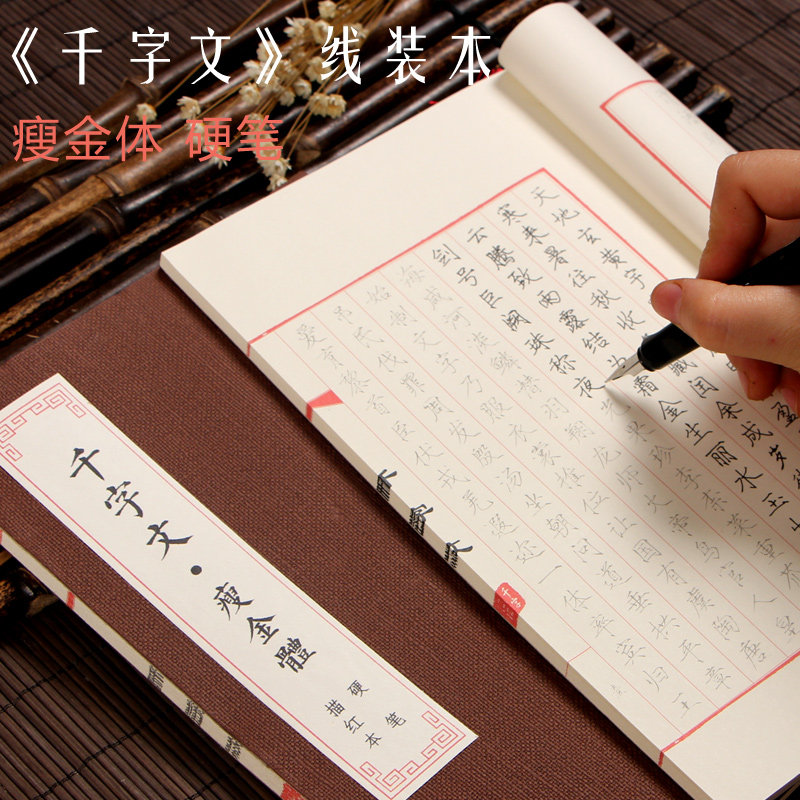 《千字文》线装本
瘦金体 硬笔
天地玄黄宇
盈
寒来暑往秋收
藏闰余成岁
云腾致雨露结为霜金生丽水玉
剑号巨阙珠称夜光果珍李柰菜重芥
海咸河淡鳞潜羽翔龙师火帝鸟官人皇
始制文字乃服衣裳推位让国有虞陶唐
吊民伐罪周发殷汤坐朝问道垂拱平章
爱育黎首臣伏戎羌遐迩一体率宾归王
千字文
千字文·瘦金體
硬笔
描红本